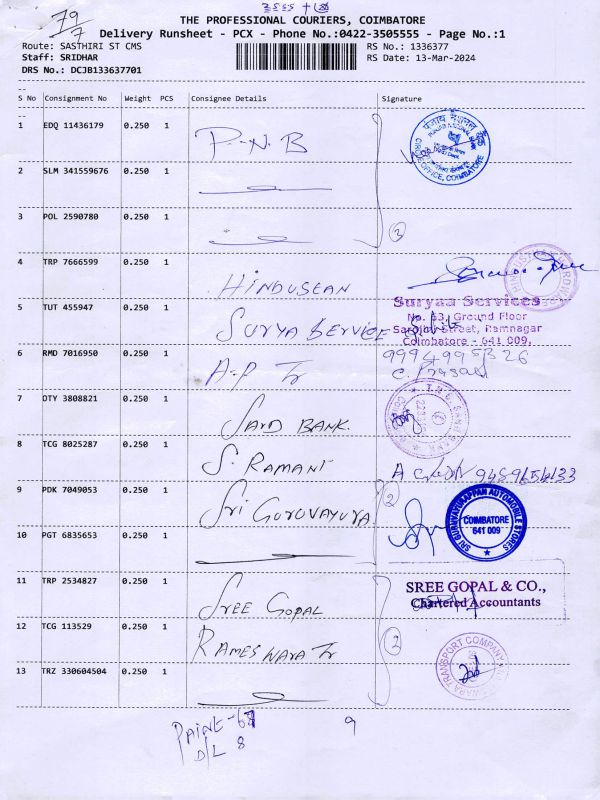 79
7
THE PROFESSIONAL COURIERS, COIMBATORE
Delivery Runsheet - PCX - Phone No.:0422-3505555 - Page No.:1
Route: SASTHIRI ST CMS
Staff: SRIDHAR
DRS No.: DCJB133637701
RS No.: 1336377
RS Date: 13-Mar-2024
S No Consignment No Weight PCS Consignee Details Signature
1 EDQ 11436179 0.250 1 P.N.B
CIRCLE OFFICE, COIMBATORE
2 SLM 341559676 0.250 1
3 POL 2590780 0.250 1
3
4 TRP 7666599 0.250 1 HINDUSTAN
5 TUT 455947 0.250 1 SURYA SERVICE
Suryaa Services
No. 63, Ground Floor
Street, Ramnagar
Coimbatore - 641 009.
6 RMD 7016950 0.250 1 A-P Tr
C. Prasad
7 OTY 3808821 0.250 1 SAID BANK.
8 TCG 8025287 0.250 1 S. RAMANI
9 PDK 7049053 0.250 1 Sri GUROVAYURA
2
SRI GURUVAYURAPPAN AUTOMOBILE STORES
COIMBATORE
641 009
10 PGT 6835653 0.250 1
11 TRP 2534827 0.250 1 SREE GOPAL
SREE GOPAL & CO.,
Chartered Accountants
12 TCG 113529 0.250 1 RAMESWARA Tr
2
TRANSPORT COMPANY
13 TRZ 330604504 0.250 1
D/L 8
9